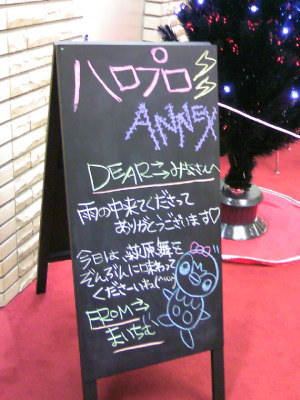 ハロプロ
ANNEX
DEAR→みなさんへ
雨の中来てくださって
ありがとうございます♡
今日は、萩原舞を
ぞんぶんに味わって
くださーいね(^ω^)
FROM→
まいちむ